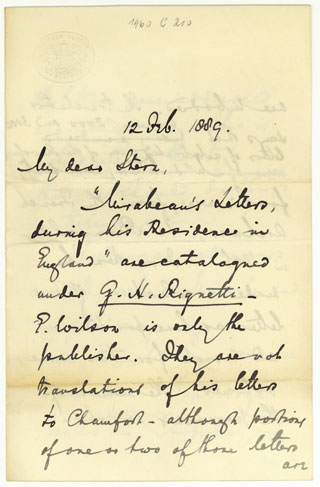 1960 C 210
12 Feb. 1889.
My dear Stern,
"Mirabeau's Letters,
during his Residence in
England" are catalogued
under G. H. Riquetti -
E. Wilson is only the
publisher. They are not
translations of his letters
to Chamfort - although portions
of one or two of those letters
are